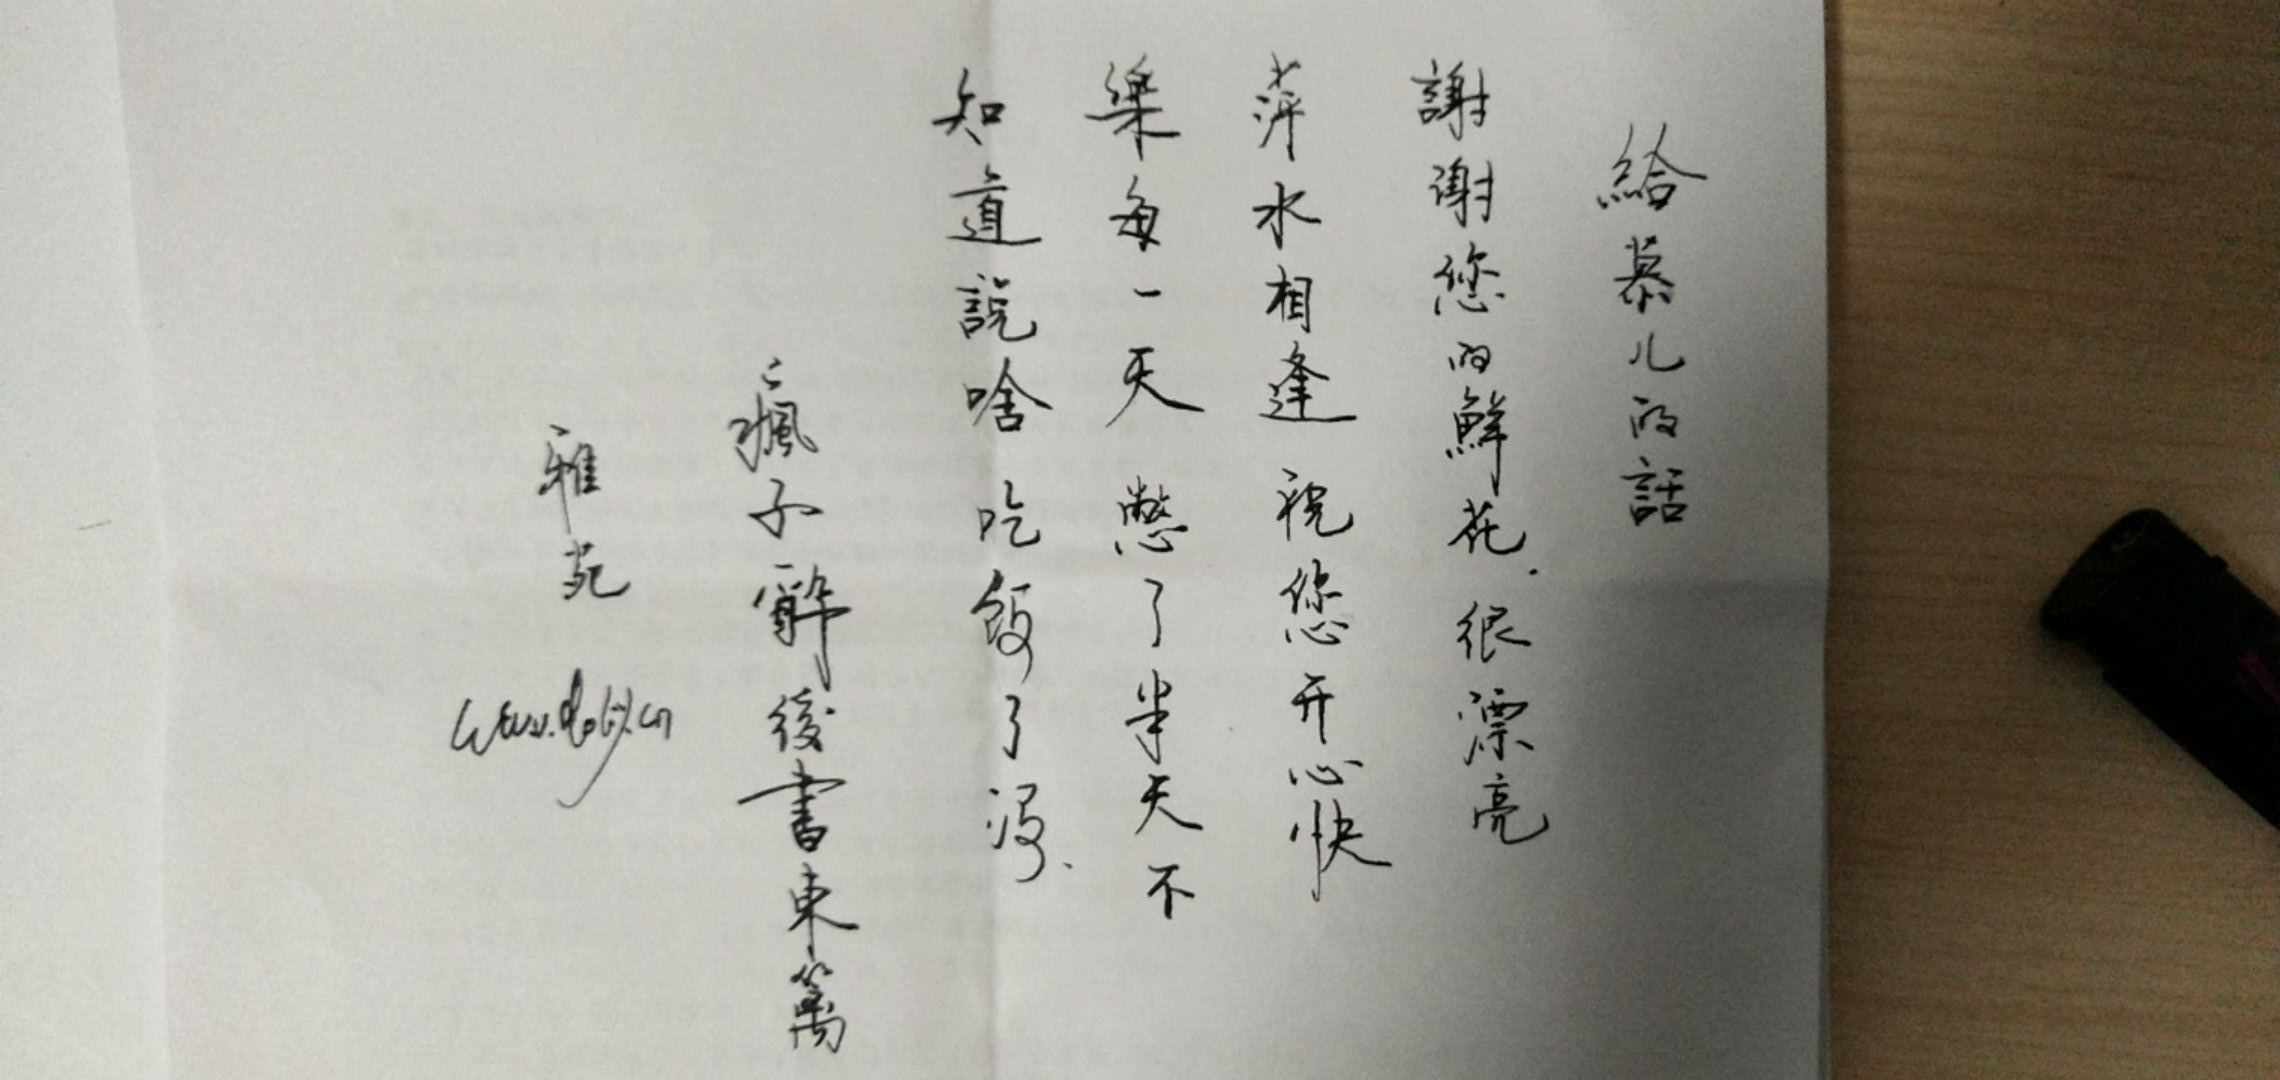 給慕儿的話
謝謝您的鮮花.很漂亮
萍水相逢 祝您开心快
樂每一天 憋了半天不
知道説啥 吃飯了没.
瘋子醉後書東篱
雅苑